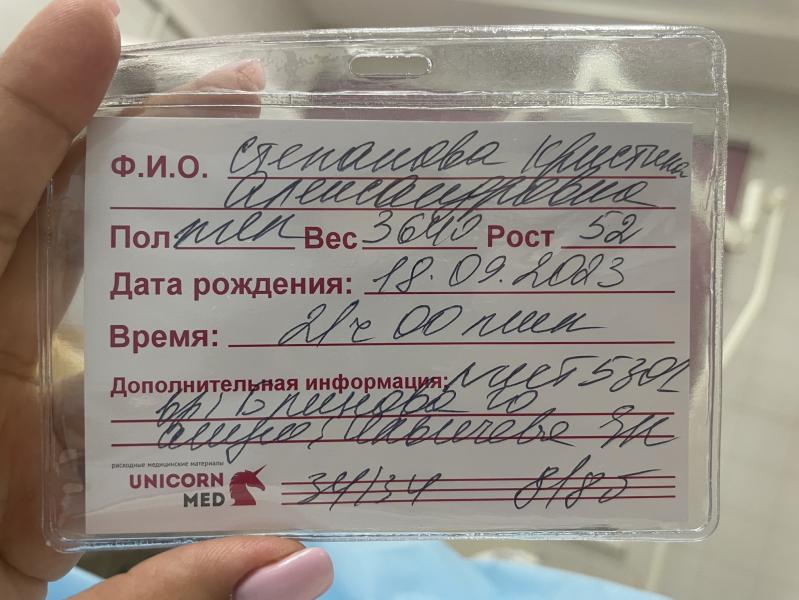 Ф.И.О. Степанова Кристина
Александровна
Пол жен Вес 3640 Рост 52
Дата рождения: 18.09.2023
Время: 21ч 00 мин
Дополнительная информация: №ист 5301
вр:
акуш:
расходные медицинские материалы
UNICORN
MED
34/34 8/8б